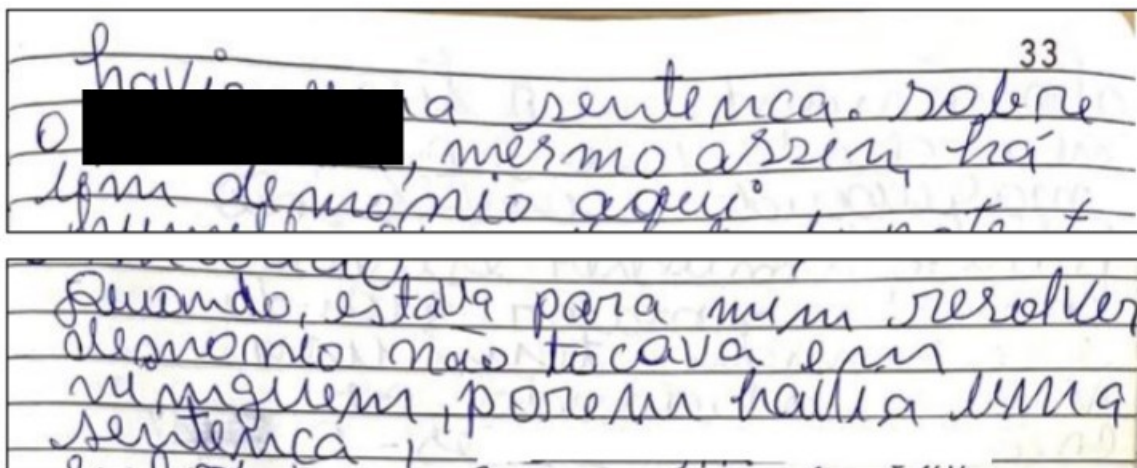 33
havia uma sentenca. sobre
o , mesmo assim, há
um demónio aqui
Quando, estava para mim resolver
demonio não tocava em
ninguem, porem havia uma
sentenca,